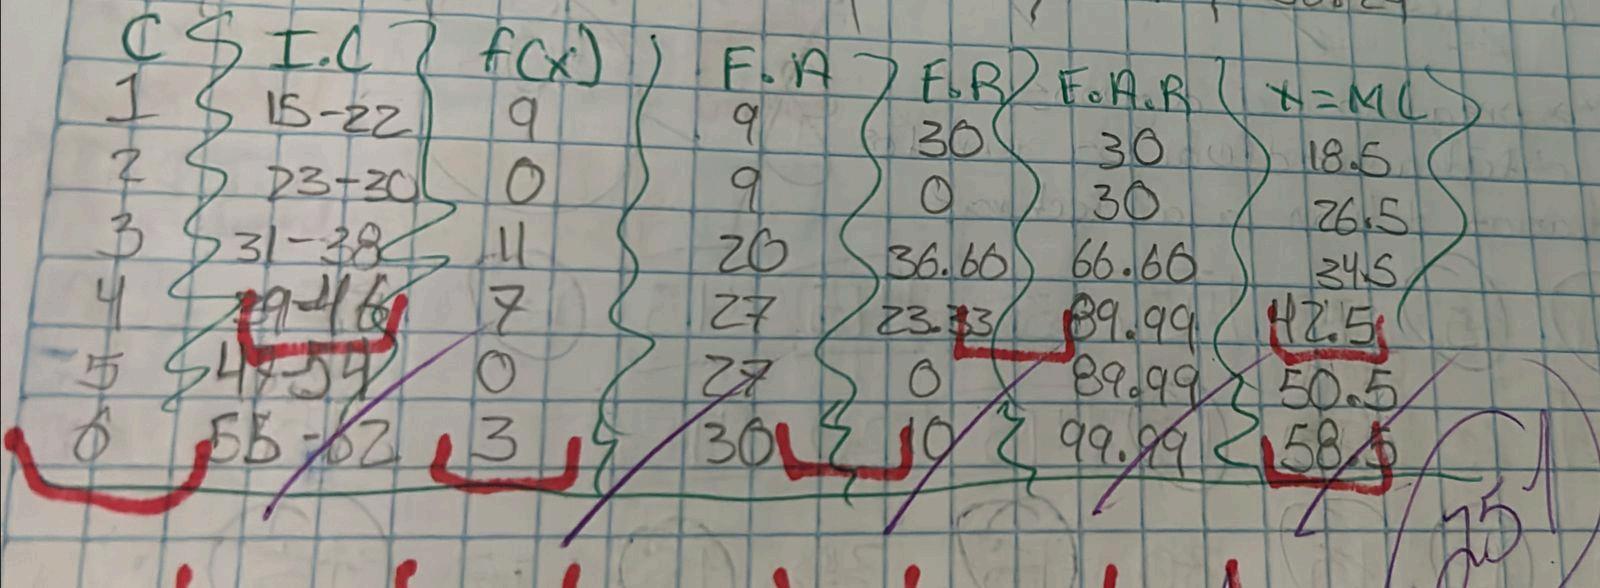 C I.C f(x) F.A F.R F.A.R X=MC
1 15-22 9 9 30 30 18.5
2 23-30 0 9 0 30 26.5
3 31-38 11 20 36.60 66.60 34.5
4 39-46 7 27 23.33 89.99 42.5
5 47-54 0 27 0 89.99 50.5
6 55-62 3 30 10 99.99 58.5